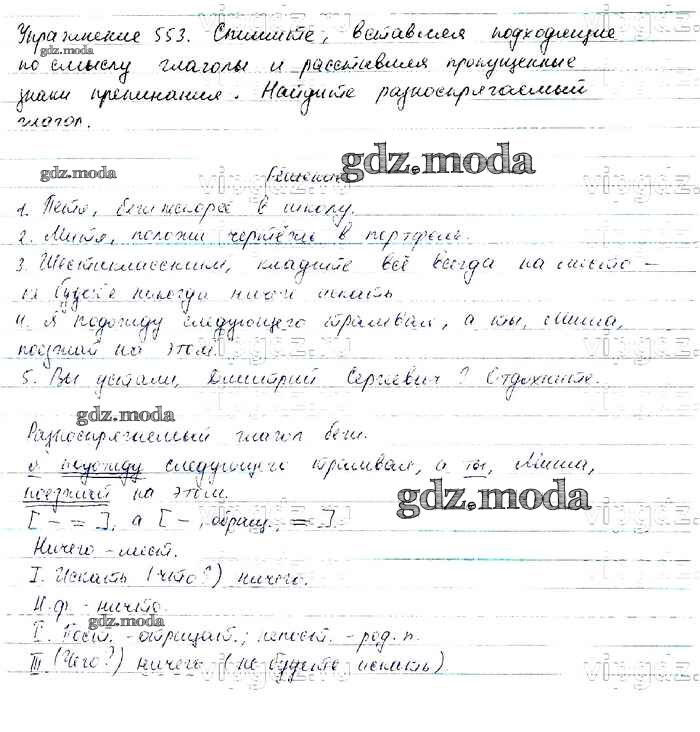 Упражнение 553. Спишите, вставляя подходящие
gdz.moda
по смыслу глаголы и расставляя пропущенные
знаки препинания. Найдите разноспрягаемый
глагол.
gdz.moda
Решение
gdz.moda
1. Петя, беги скорее в школу.
2. Митя, положи чертёж в портфель.
3. Шестиклассники, кладите всё всегда на место –
не будете никогда ничего искать.
4. Я подожду следующего трамвая, а ты, Миша,
поезжай на этом.
5. Вы устали, Дмитрий Сергеевич? Отдохните.
gdz.moda
Разноспрягаемый глагол беги.
Я подожду следующего трамвая, а ты, Миша,
поезжай на этом.
gdz.moda
[ – = ], а [ –, обращ., = ].
Ничего – мест.
I. Искать (что?) ничего.
Н.ф. – ничто.
gdz.moda
II. Пост. – отрицат.; непост. – род. п.
III (Чего?) ничего (не будете искать)